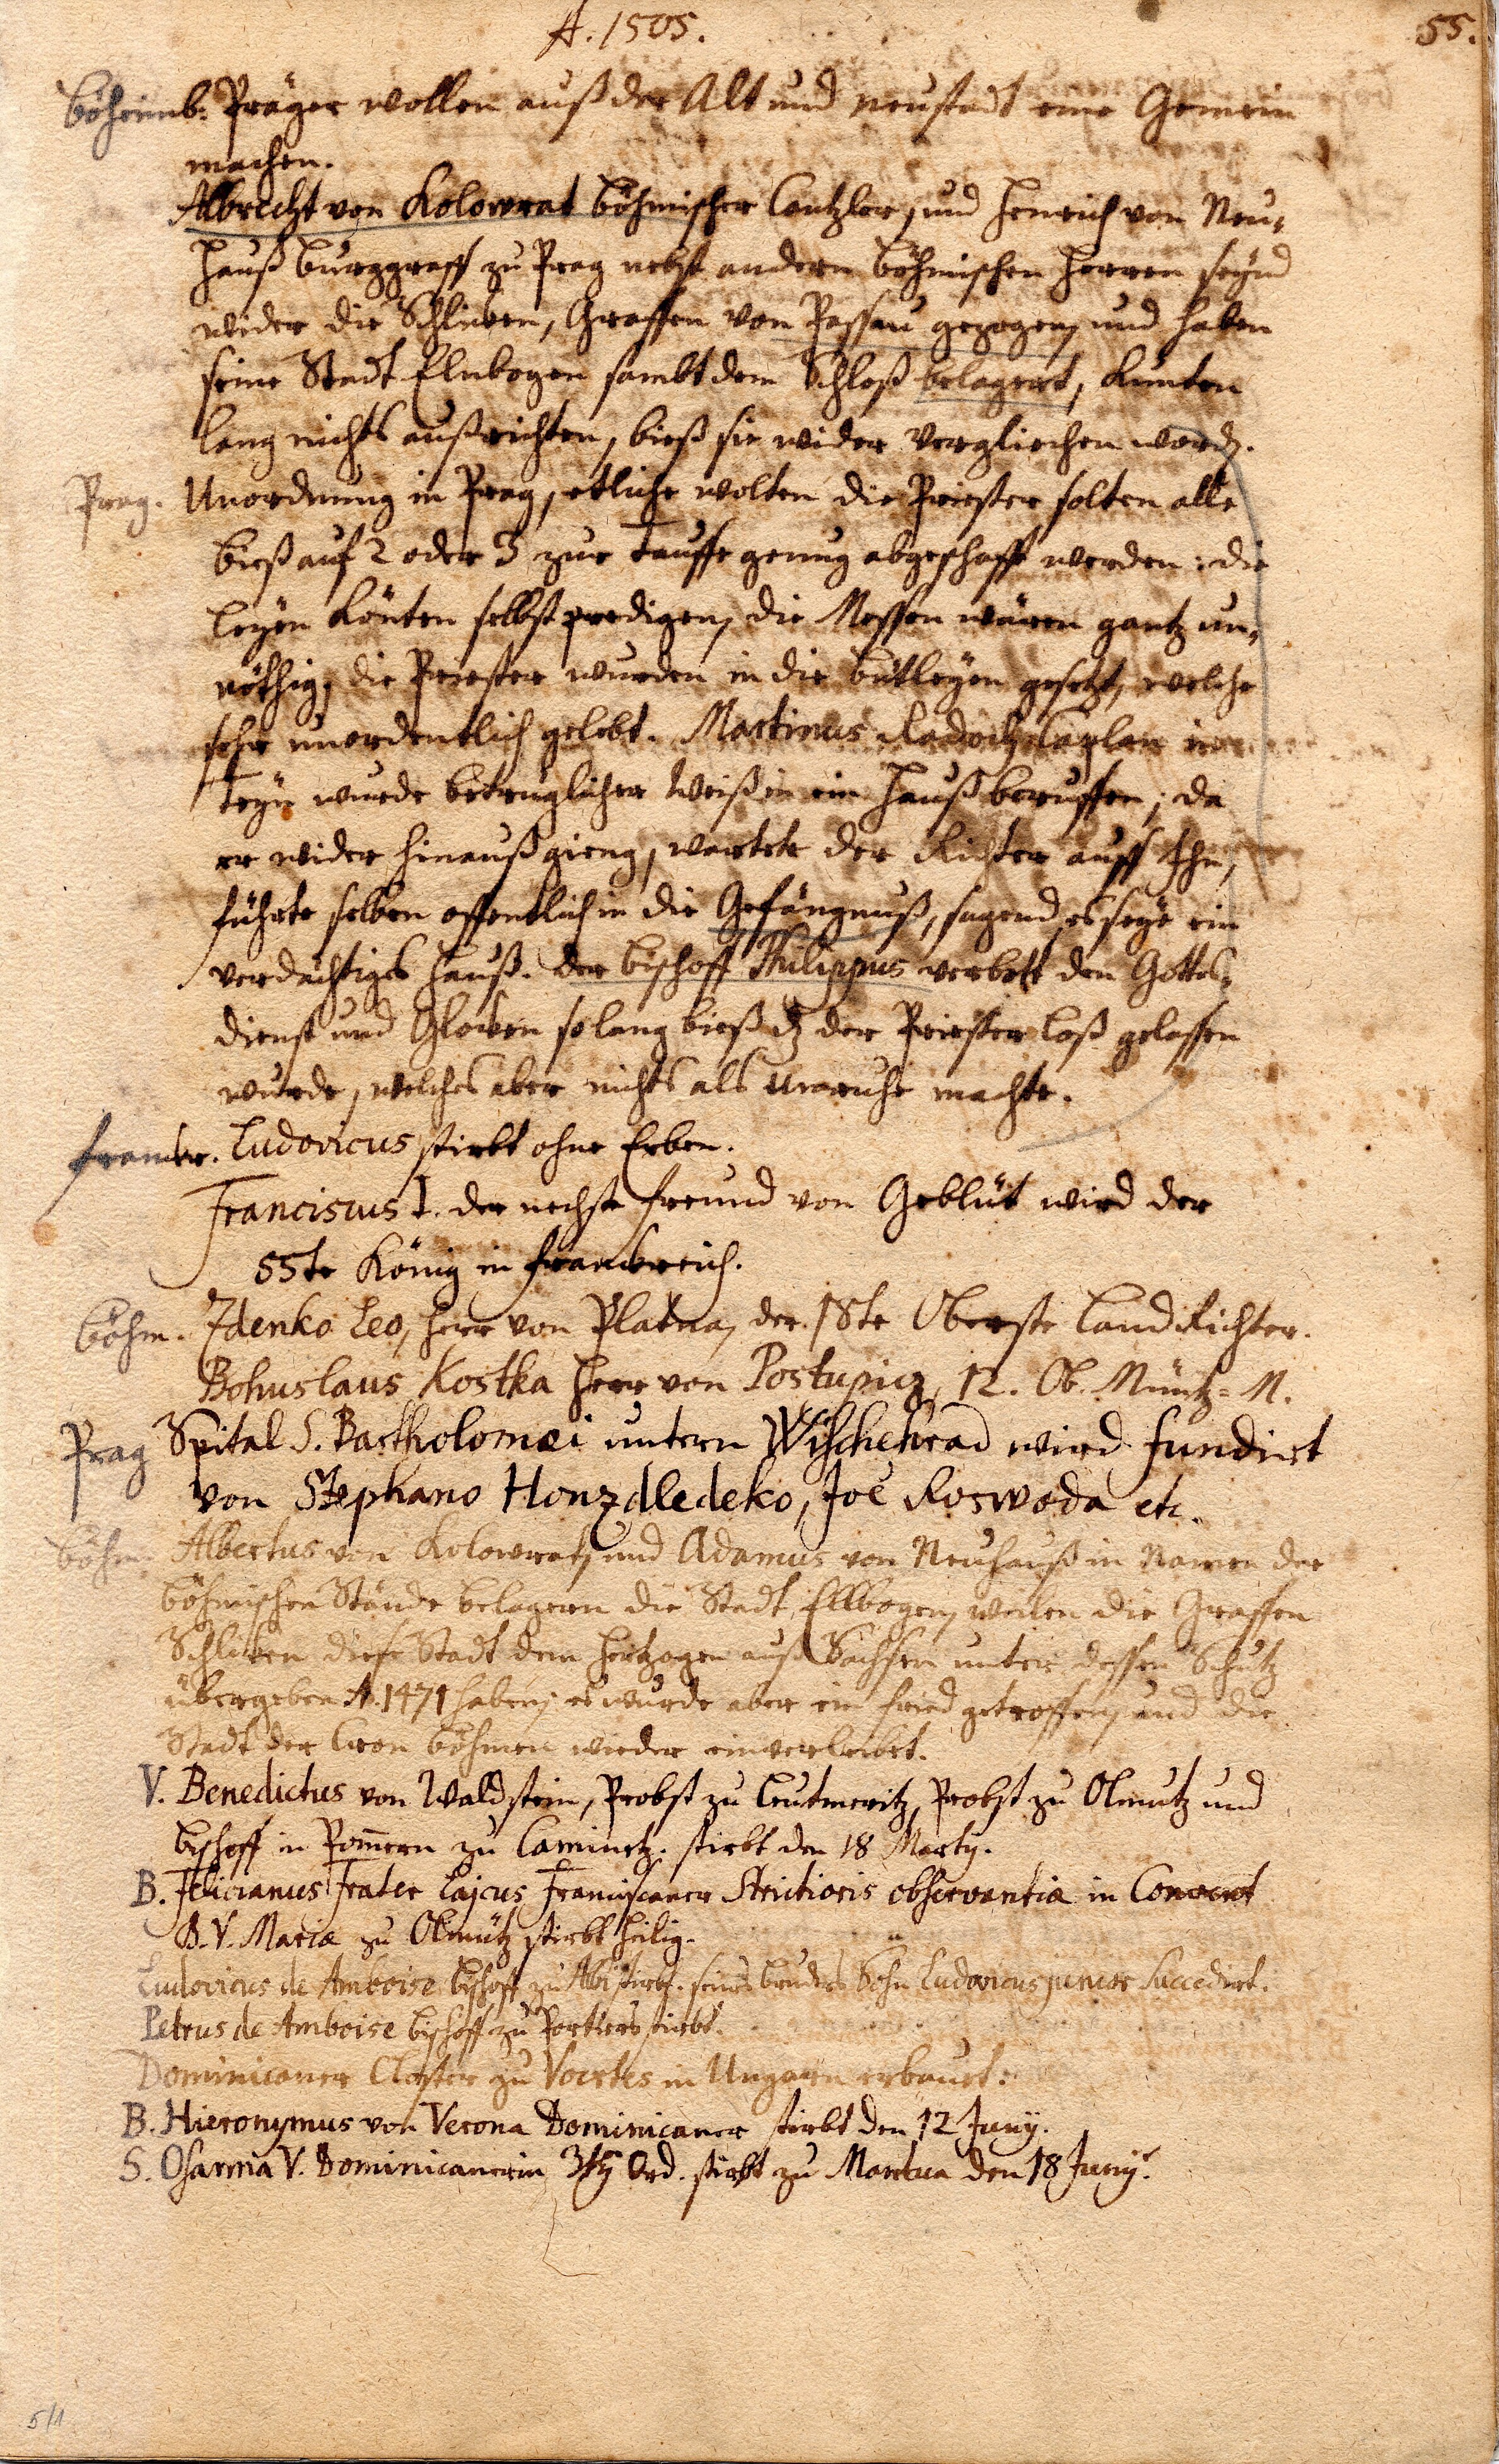 A. 1505.
55.
Böheimb. Präger wollen auß der Alt und neustadt eine Gemein
machen.
Albrecht von Kolowrat böhmischer Cantzler, und Henrich von Neu-
hauß burggraff zu Prag nebst andern böhmischen Herren seynd
wider die Schlicken, Graffen von Passau gezogen, und haben
seine Stadt Elnbogen sambt dem Schloß belagert, kunten
lang nichts außrichten, bieß sie wider verglichen word.
Prag. Unordnung in Prag, etliche wolten die Priester solten alle
bieß auf 2 oder 3 zur Tauffe genug abgeschafft werden: die
leyen könten selbst predigen, die Messen wären gantz un-
nöthig, die Priester wurden in die bütleyen gesetzt, welche
sehr unordentlich gelebt. Martinus Radositz Caplan in
Teyn wurde betruglicher Weiß in ein Hauß beruffen; da
er wider hinauß gieng, wartete der Richter auff Ihn,
führte selben offentlich in die Gefängnuß, sagend, es seye ein
verdächtiges Hauß. Der bischoff Philippus verbott den Gottes-
dienst und Glocken so lang bieß dz der Priester loß gelassen
wurde, welches aber nichts als unruhe machte.
Franckr. Ludovicus stirbt ohne Erben.
Franciscus I. der nechste freund von Geblüt wird der
55te König in Franckreich.
Böhm. Zdenko Leo, Herr von Platna, der 18te Oberste Land Richter.
Bohuslaus Kostka Herr von Postupicz, 12. Ob. Müntz-M.
Prag Spital S. Bartholomæi untern Wischehrad wird fundirt
von Stephano Honzdledeko, Joe Roswoda etc.
böhm. Albertus von Kolowrat, und Adamus von Neuhauß in Namen der
böhmischen Stände belagern die Stadt Ellbogen, weilen die Graffen
Schlicken diese Stadt dem Hertzogen auß Sachsen unter dessen Schutz
übergeben A. 1471 haben; es wurde aber ein fried getroffen, und die
Stadt der Cron böhmen wieder einverleibet.
V. Benedictus von Waldstein, Probst zu Leutmeritz, Probst zu Olmutz und
bischoff in Pom̄ern zu Caminetz. stirbt den 18 Martij.
B. Felicianus Frater Lajcus Franciscaner Strictioris observantiæ in Convent
B. V. Mariæ zu Olmütz stirbt heilig.
Ludovicus de Amboise bischoff zu Albi stirbt. seines bruders Sohn Ludovicus junior Succedirt.
Petrus de Amboise bischoff zu Portiers stirbt.
Dominicaner Closter zu Voertes in Ungarn erbauet.
B. Hieronymus von Verona Dominicaner stirbt den 12 Junij.
S. Osanna V. Dominicanerin 3tij Ord. stirbt zu Mantua den 18 Junij.
5/1